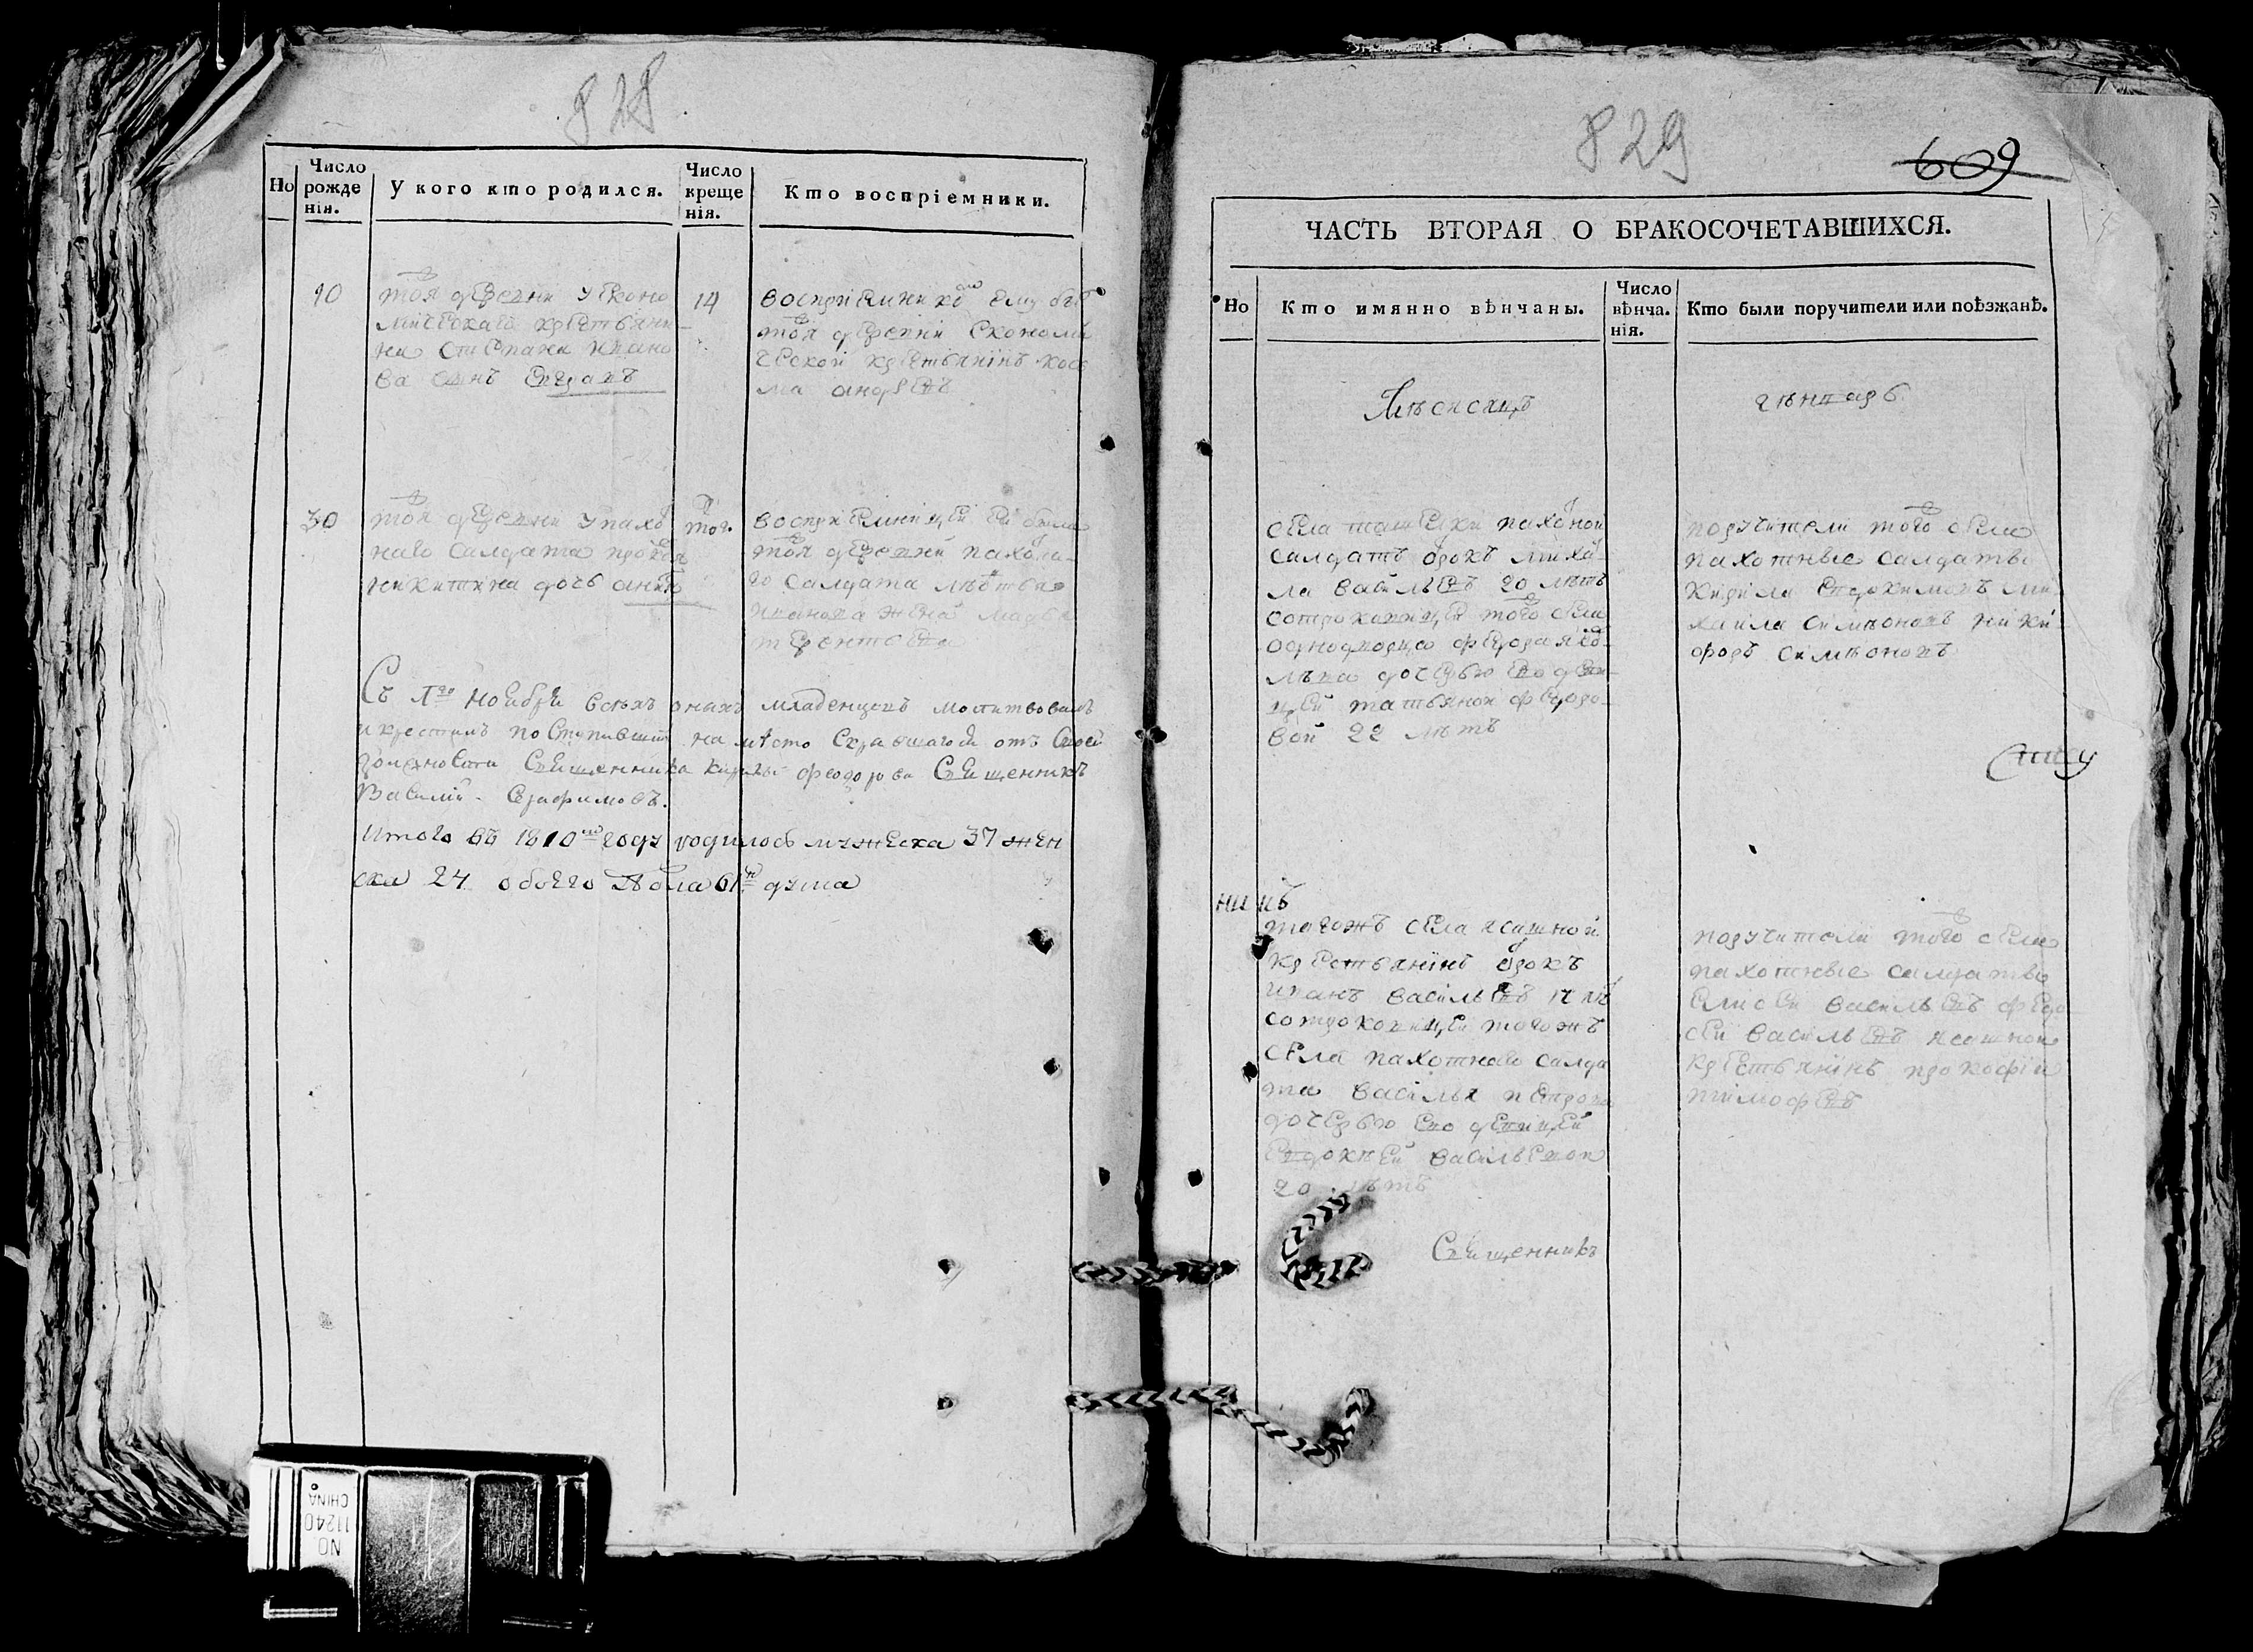 828
Но
Число рожде нія.
У кого кто родился.
Число креще нія.
Кто воспріемники.
10
тоя деревни у еконо
мическаго крестьяни
на степана ивано
ва сынъ
14
воспріемникомъ ему былъ
тоя деревни економи
ческой крестьянінъ кось
ма андреевъ
30
тоя деревни у пахо
наго салдата
никитина дочь анна
того
воспріемницей ей была
тоя деревни пахотна
го салдата
иванова жена марья
терентьева
Съ ноября всѣхъ оныхъ младенцовъ молитвовалъ
и крестилъ поступившій на мѣсто отъ своей
должности Священника кирилы феодорова Священникъ
Василій Серафимовъ.
Итого въ 1810мъ году родилось мужеска 37 жен
ска 24 обоего пола 61 душа
829
609
ЧАСТЬ ВТОРАЯ О БРАКОСОЧЕТАВШИХСЯ.
Но
Кто имянно вѣнчаны.
Число вѣнча. нія.
Кто были поручители или поѣзжанѣ.
Мѣсяцъ
генварь
села пахотной
салдатъ отрокъ михай
ла васильевъ 20 лѣтъ
сотроковицей того села
однодворца федора яко
лѣва дочерью ево деви
цей татьяной федоро
вой 22 лѣтъ
поручители того села
пахотные салдаты
кирила евдокимовъ ми
хаила симѣоновъ ники
форъ симѣоновъ
нивъ
тогожъ села ясашной
крестьянінъ отрокъ
иванъ васильевъ лѣ
сотроковицей тогожъ
села пахотнаго салда
та василья петрова
дочерью ево девицей
евдокѣей васильевой
20 лѣтъ
поручители того села
пахотные салдаты
васильевъ федо
сей васильевъ ясашной
крестьянінъ прокофій
тімофеевъ
Священникъ
NO. 11240
CHINA